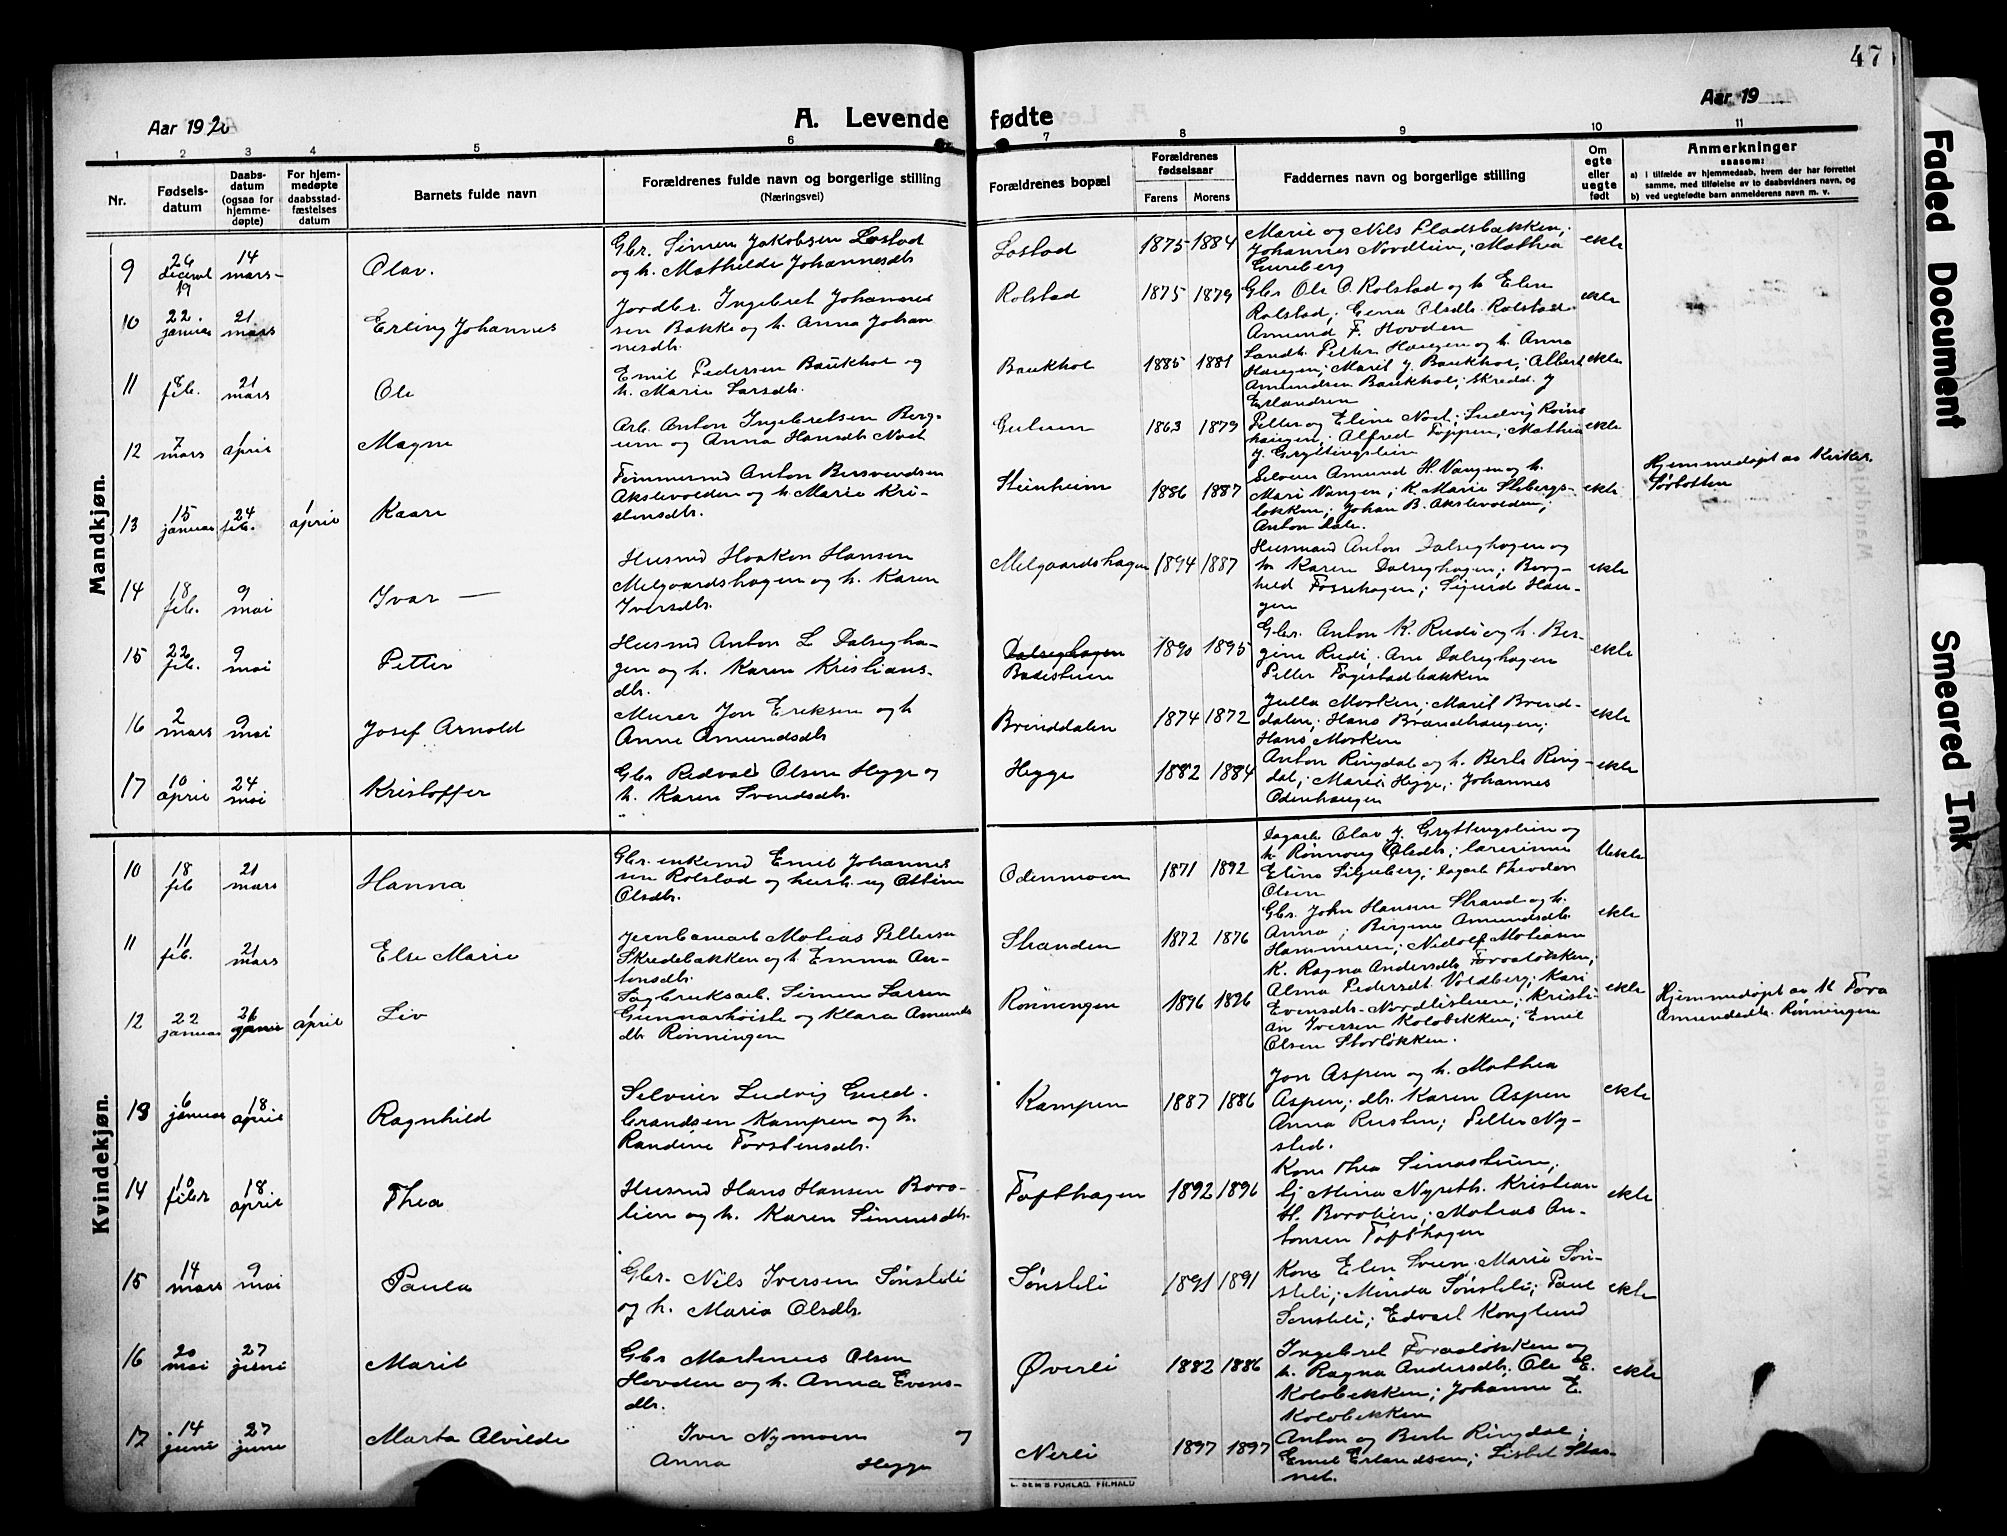 47
Aar 1920
A. Levende
fødte
Aar 19
1 2 3 4 5 6 7 8 9 10 11
Nr.
Fødsels-
datum
Daabs-
datum
(ogsaa for
hjemme-
døpte)
For hjem-
medøpte
daabsstad-
fæstelses
datum
Barnets fulde navn
Forældrenes fulde navn og borgerlige stilling
(Næringsvei)
Forældrenes bopæl
Forældrenes
fødselsaar
Farens Morens
Faddernes navn og borgerlige stilling
Om
egte
eller
uegte
født
Anmerkninger
saasom:
a) i tilfælde av hjemmedaab, hvem der har forrettet
samme, med tilføielse av to daabsvidners navn, og
b) ved uegtefødte barn anmelderens navn m. v.
Mandkjøn.
9 14 mars Olav.
Gbr. Simen Jakobsen Lostad
og h. Mathilde Johannesdtr.
Lostad 1875 1884
Marie og Nils Pladsbakken;
Johannes Nordlien; Mathea
ekte
10 22. januar 21 mars Erling Johannes
Jordbr. Ingebret Johannes
sen Bakke og h. Anna Johan
nesdtr.
Rolstad 1875 1879
Gbr Ole O. Rolstad og h Elen
Rolstad; Gena Olsdtr. Rolstad
Amund F. Hovden
ekte
11 8 feb. 21 mars Ole
Emil Pedersen Baukhol og
h. Marie Larsdtr.
Baukhol 1885 1881
Landh. Petter Haugen og h. Anna
Haugen; Marit J. Baukhol; Albert
Amundsen Baukhol; Skredd. J
Erlandsen
ekte
12 7 mars 1 april Magne
Arb. Anton Ingebretsen Berg-
um og Anna Hansdtr. Noet
1863 1879
Petter og Eline Noet; Ludvig
haugen; Alfred Toppen; Mathea
J. Gryttingslien
ekte
13 15 januar 24 feb. 1 april Kaare
Tømmermd Anton Bersvendsen
Akslevolden og h. Marie Kri-
stensdtr.
Steinheim 1886 1887
Selveier Amund H. Vangen og h.
Mari Vangen; K. Marie
løkken; Johan B. Akslevolden;
Anton Dale.
ekte
Hjemmedøpt av Kirkes.
Sørbotten
14 18 feb. 9 mai Ivar —
Husmd Haakon Hansen
Melgaardshagen og h. Karen
Iversdtr.
Melgaardshagen 1894 1887
Husmand Anton Dalseghagen og
h. Karen Dalseghagen; Borg-
hild Fossehagen; Sigurd Hau-
gen
ekte
15 22 feb. 9 mai Petter
Husmd Anton L Dalsegha-
gen og h. Karen Kristians-
dtr.
Dalseghagen
1890 1895
Gbr. Anton K. Rudi og h. Ber-
gine Rudi; Ane Dalseghagen
Petter Fagistadbakken
ekte
16 2 mars 9 mai Josef Arnold
Murer Jon Eriksen og h
Anne Amundsdtr
Brenddalen 1874 1872
Julla Morken; Marit Brend-
dalen; Hans Brandhaugen;
Hans Morken
ekte
17 10 april 24 mai Kristoffer
Gbr Redvald Olsen Hegge og
h. Karen Svendsdtr.
Hegge 1882 1884
Anton Ringdal og h. Berte Ring-
dal; Marie Hegge; Johannes
Odenhaugen
ekte
Kvindekjøn.
10 18 feb 21 mars Hanna
Gbr. enkemd Emil Johannes
sen Rolstad og hush. ug Ottine
Olsdtr.
Odenmoen 1871 1892
Dagarb. Olav J. Gryttingslien og
h. Rønnoug Olsdtr; lærerinne
Eline Siljuberg; Dagarb. Theodor
Olsen
Uekte
11 11 feb. 21 mars Else Marie
Jernbanearb Matias Pettersen
Skredebakken og h. Emma An-
tonsdtr.
Stranden 1872 1876
Gbr. John Hansen Strand og h.
Anna; Bergine Amundsdtr.
Hammeren; Nidolf Matiasen
K. Ragna Andersdtr. Foraaløkken;
ekte
12 22 januar 26 1 april Liv
Sagbruksarb. Simen Larsen
Gunnarhøiste og Klara Amunds
dtr Rønningen
Rønningen 1896 1896
Alma Pedersdt. Voldberg; Kari
Evensdtr. Nordlistuen; Kristi-
an Iversen Kolobekken; Emil
Olsen Storløkken.
ekte
Hjemmedøpt av K Tora
Amundsdtr. Rønningen
13 6 januar 18 april Ragnhild
Selveier Ludvig Guld-
brandsen Kampen og h.
Randine Torstensdtr.
Kampen 1887 1886
Jon Aspen og h. Mathea
Aspen; dtr. Karen Aspen
Anna Rusten; Petter Ny-
sted.
ekte
14 10 18 april Thea
Husmd Hans Hansen Boro-
lien og h. Karen Simensdtr.
Tofthagen 1892 1896
Kone Thea Simastuen;
Gj Mina Nyseth. Kristian
H. Borolien; Matias An-
tonsen Tofthagen
ekte
15 14 mars 9 mai Paula
Gbr. Nils Iversen Sønsteli
og h. Maria Olsdtr.
Sønsteli 1891 1891
Kone Elen Sveen; Marie Søn-
steli; Minda Sønsteli; Paul
Sønsteli; Edvart Konglund
ekte
16 20 mai 27 juni Marit
Gbr Martinus Olsen
Hovden og h. Anna Evens-
dtr.
Øverli 1882 1886
Ingebret Foraaløkken og
h. Ragna Andersdtr. Ole E.
Kolobekken; Johanne E.
Kolobekken
ekte
17 14 juni 27 juni Marta Alvilde
Iver Nymoen
Anna Hegge
Nerli 1897 1897
Anton og Berte Ringdal;
Emil Erlandsen; Lisbet
L. SEM'S FORLAG, FR.HALD
Faded Document
Smeared Ink